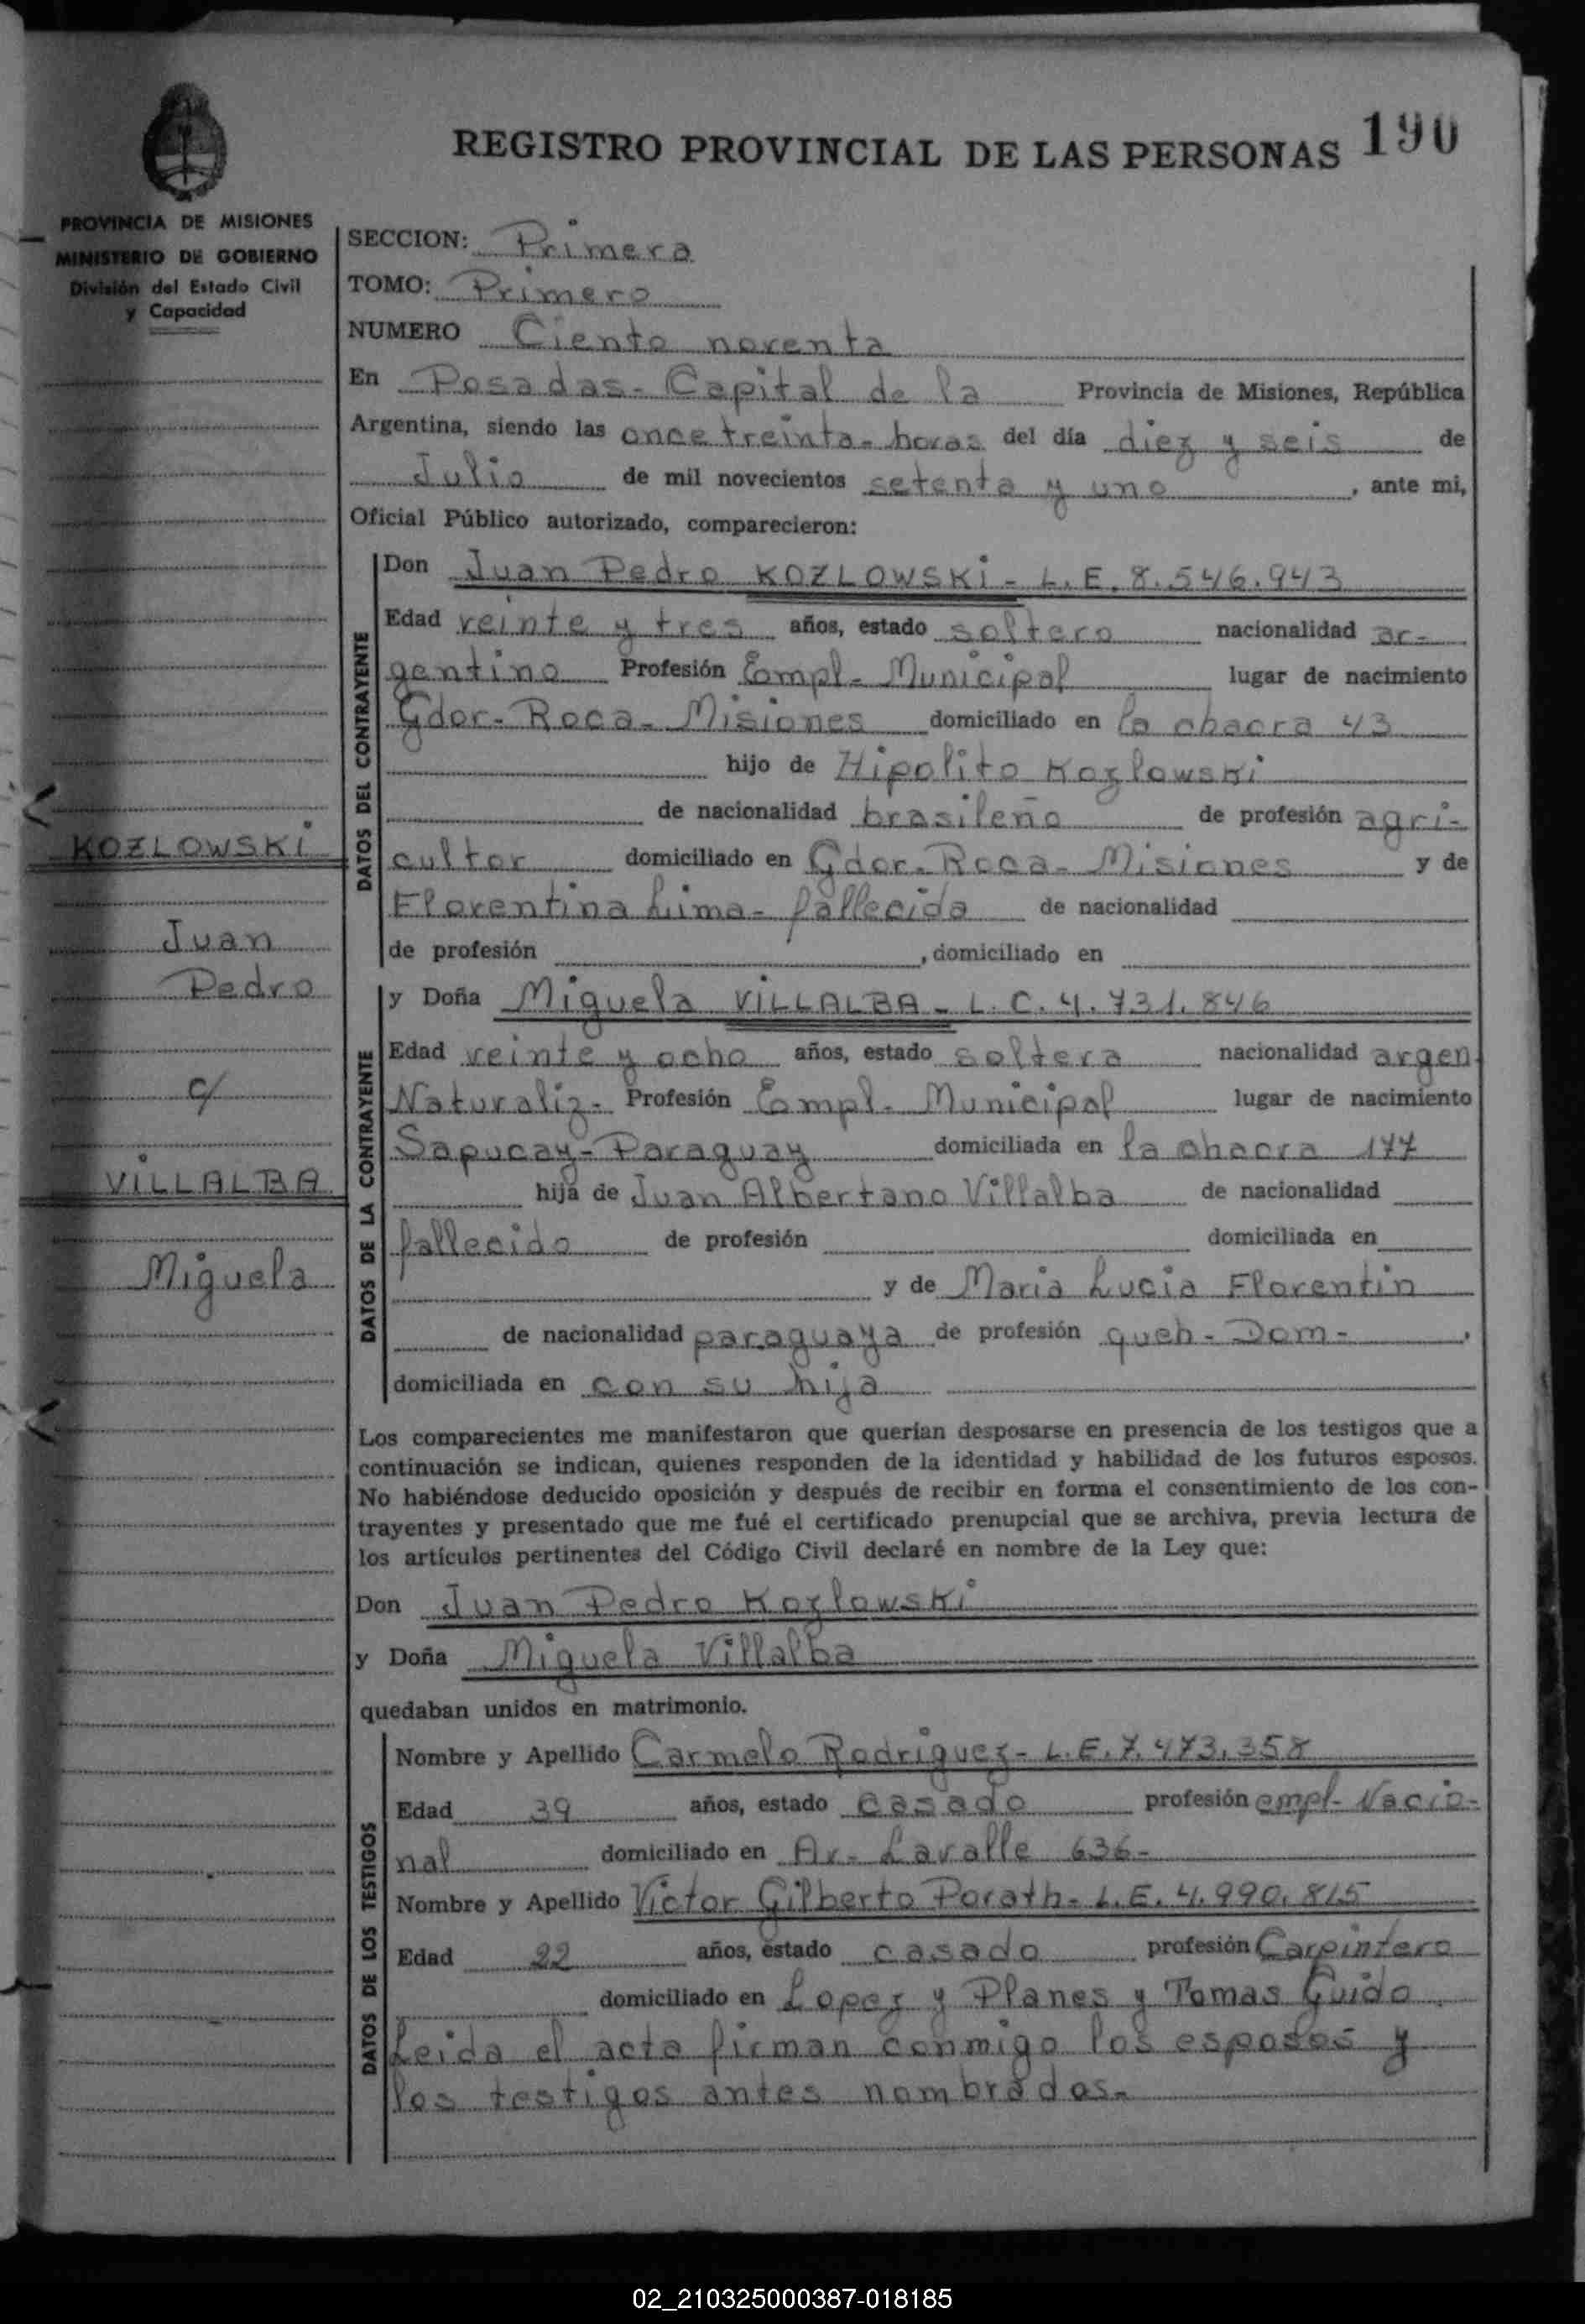 REGISTRO PROVINCIAL DE LAS PERSONAS 190
PROVINCIA DE MISIONES
MINISTERIO DE GOBIERNO
División del Estado Civil
y Capacidad
SECCION: Primera
TOMO: Primero
NUMERO Ciento noventa
En Posadas - Capital de la Provincia de Misiones, República
Argentina, siendo las once treinta - horas del día diez y seis de
Julio de mil novecientos setenta y uno, ante mi,
Oficial Público autorizado, comparecieron:
DATOS DEL CONTRAYENTE
Don Juan Pedro KOZLOWSKi - L.E. 8.546.943
Edad veinte y tres años, estado soltero nacionalidad ar-
gentino Profesión Empl - Municipal lugar de nacimiento
Gdor - Roca - Misiones domiciliado en la chacra 43
hijo de Hipolito Kozlowski
de nacionalidad brasileño de profesión agri-
cultor domiciliado en Gdor - Roca - Misiones y de
Florentina Lima - fallecida de nacionalidad
de profesión , domiciliado en
KOZLOWSKi
Juan
Pedro
c/
ViLLALBA
Miguela
DATOS DE LA CONTRAYENTE
y Doña Miguela ViLLALBA - L.C. 4.731.846
Edad veinte y ocho años, estado soltera nacionalidad argen
Naturaliz - Profesión Empl - Municipal lugar de nacimiento
Sapucay - Paraguay domiciliada en la chacra 177
hija de Juan Albertano Villalba de nacionalidad
fallecido de profesión domiciliada en
y de Maria Lucia Florentin
de nacionalidad paraguaya de profesión queh - Dom - ,
domiciliada en con su hija
Los comparecientes me manifestaron que querían desposarse en presencia de los testigos que a
continuación se indican, quienes responden de la identidad y habilidad de los futuros esposos.
No habiéndose deducido oposición y después de recibir en forma el consentimiento de los con-
trayentes y presentado que me fué el certificado prenupcial que se archiva, previa lectura de
los artículos pertinentes del Código Civil declaré en nombre de la Ley que:
Don Juan Pedro Kozlowski
y Doña Miguela Villalba
quedaban unidos en matrimonio.
DATOS DE LOS TESTIGOS
Nombre y Apellido Carmelo Rodriguez - L.E. 7.473.358
Edad 39 años, estado casado profesión empl - Nacio-
nal domiciliado en Av - Lavalle 636 -
Nombre y Apellido Victor Gilberto Porath - L.E. 4.990.815
Edad 22 años, estado casado profesión Carpintero
domiciliado en Lopez y Planes y Tomas Guido
Leida el acta firman conmigo los esposos y
los testigos antes nombrados -
02_210325000387-018185